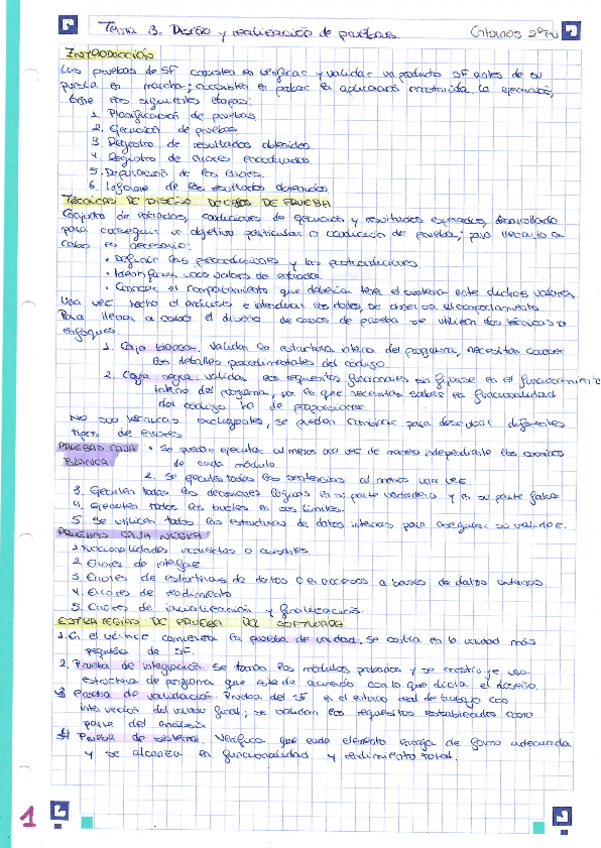 Tema 3. Diseño y realización de pruebas. Entornos 2ºEV
INTRODUCCIÓN
Las pruebas de SF consisten en verificar y validar un producto SF antes de su
puesta en marcha; consisten en probar la aplicación construida. La ejecución,
tiene las siguientes etapas:
1. Planificación de pruebas.
2. Ejecución de pruebas
3. Registro de resultados obtenidos.
4. Registro de errores encontrados.
5. Depuración de los errores.
6. Informe de los resultados obtenidos
TÉCNICAS DE DISEÑO DE CASOS DE PRUEBA
Conjunto de entradas, condiciones de ejecución y resultados esperados, desarrollado
para conseguir un objetivo particular o condición de prueba; para llevarlo a
cabo es necesario:
• Definir las precondiciones y las postcondiciones
• Identificar unos valores de entrada.
• Conocer el comportamiento que debería tener el sistema ante dichos valores
Una vez hecho el análisis e introducir los datos, se observa el comportamiento
Para llevar a cabo el diseño de casos de prueba se utilizan dos técnicas o
enfoques
1. Caja blanca. Validan la estructura interna del programa, necesitan conocer
los detalles procedimentales del código.
2. Caja negra. validan los requisitos funcionales sin fijarse en el funcionamiento
interno del programa, por lo que necesitan saber la funcionalidad
del código ha de proporcionar
No son técnicas excluyentes, se pueden combinar para descubrir diferentes
tipos de errores
PRUEBAS CAJA • Se pueden ejecutar al menos una vez de manera independiente los caminos
BLANCA de cada módulo
2. Se ejecuten todas las sentencias al menos una vez.
3. Ejecuten todas las decisiones lógicas en su parte verdadera y en su parte falsa
4. Ejecuten todos los bucles en sus límites.
5. Se utilicen todas las estructuras de datos internas para asegurar su validez.
PRUEBAS CAJA NEGRA
1. Funcionalidades incorrectas o ausentes
2. Errores de interfaz
3. Errores de estructuras de datos o en accesos a bases de datos externas
4. Errores de rendimiento
5. Errores de inicialización y finalización.
ESTRATEGIAS DE PRUEBA DEL SOFTWARE
1. En el vértice comienza la prueba de unidad. Se centra en la unidad más
pequeña de SF.
2. Prueba de integración. Se toman los módulos probados y se construye una
estructura de programa que esté de acuerdo con lo que dicta el diseño.
3) Prueba de validación. Prueba del SF en el entorno real de trabajo con
intervención del usuario final; se validan los requisitos establecidos como
parte del análisis
4) Prueba de sistema. Verifica que cada elemento encaja de forma adecuada
y se alcanza la funcionalidad y rendimiento total.
1